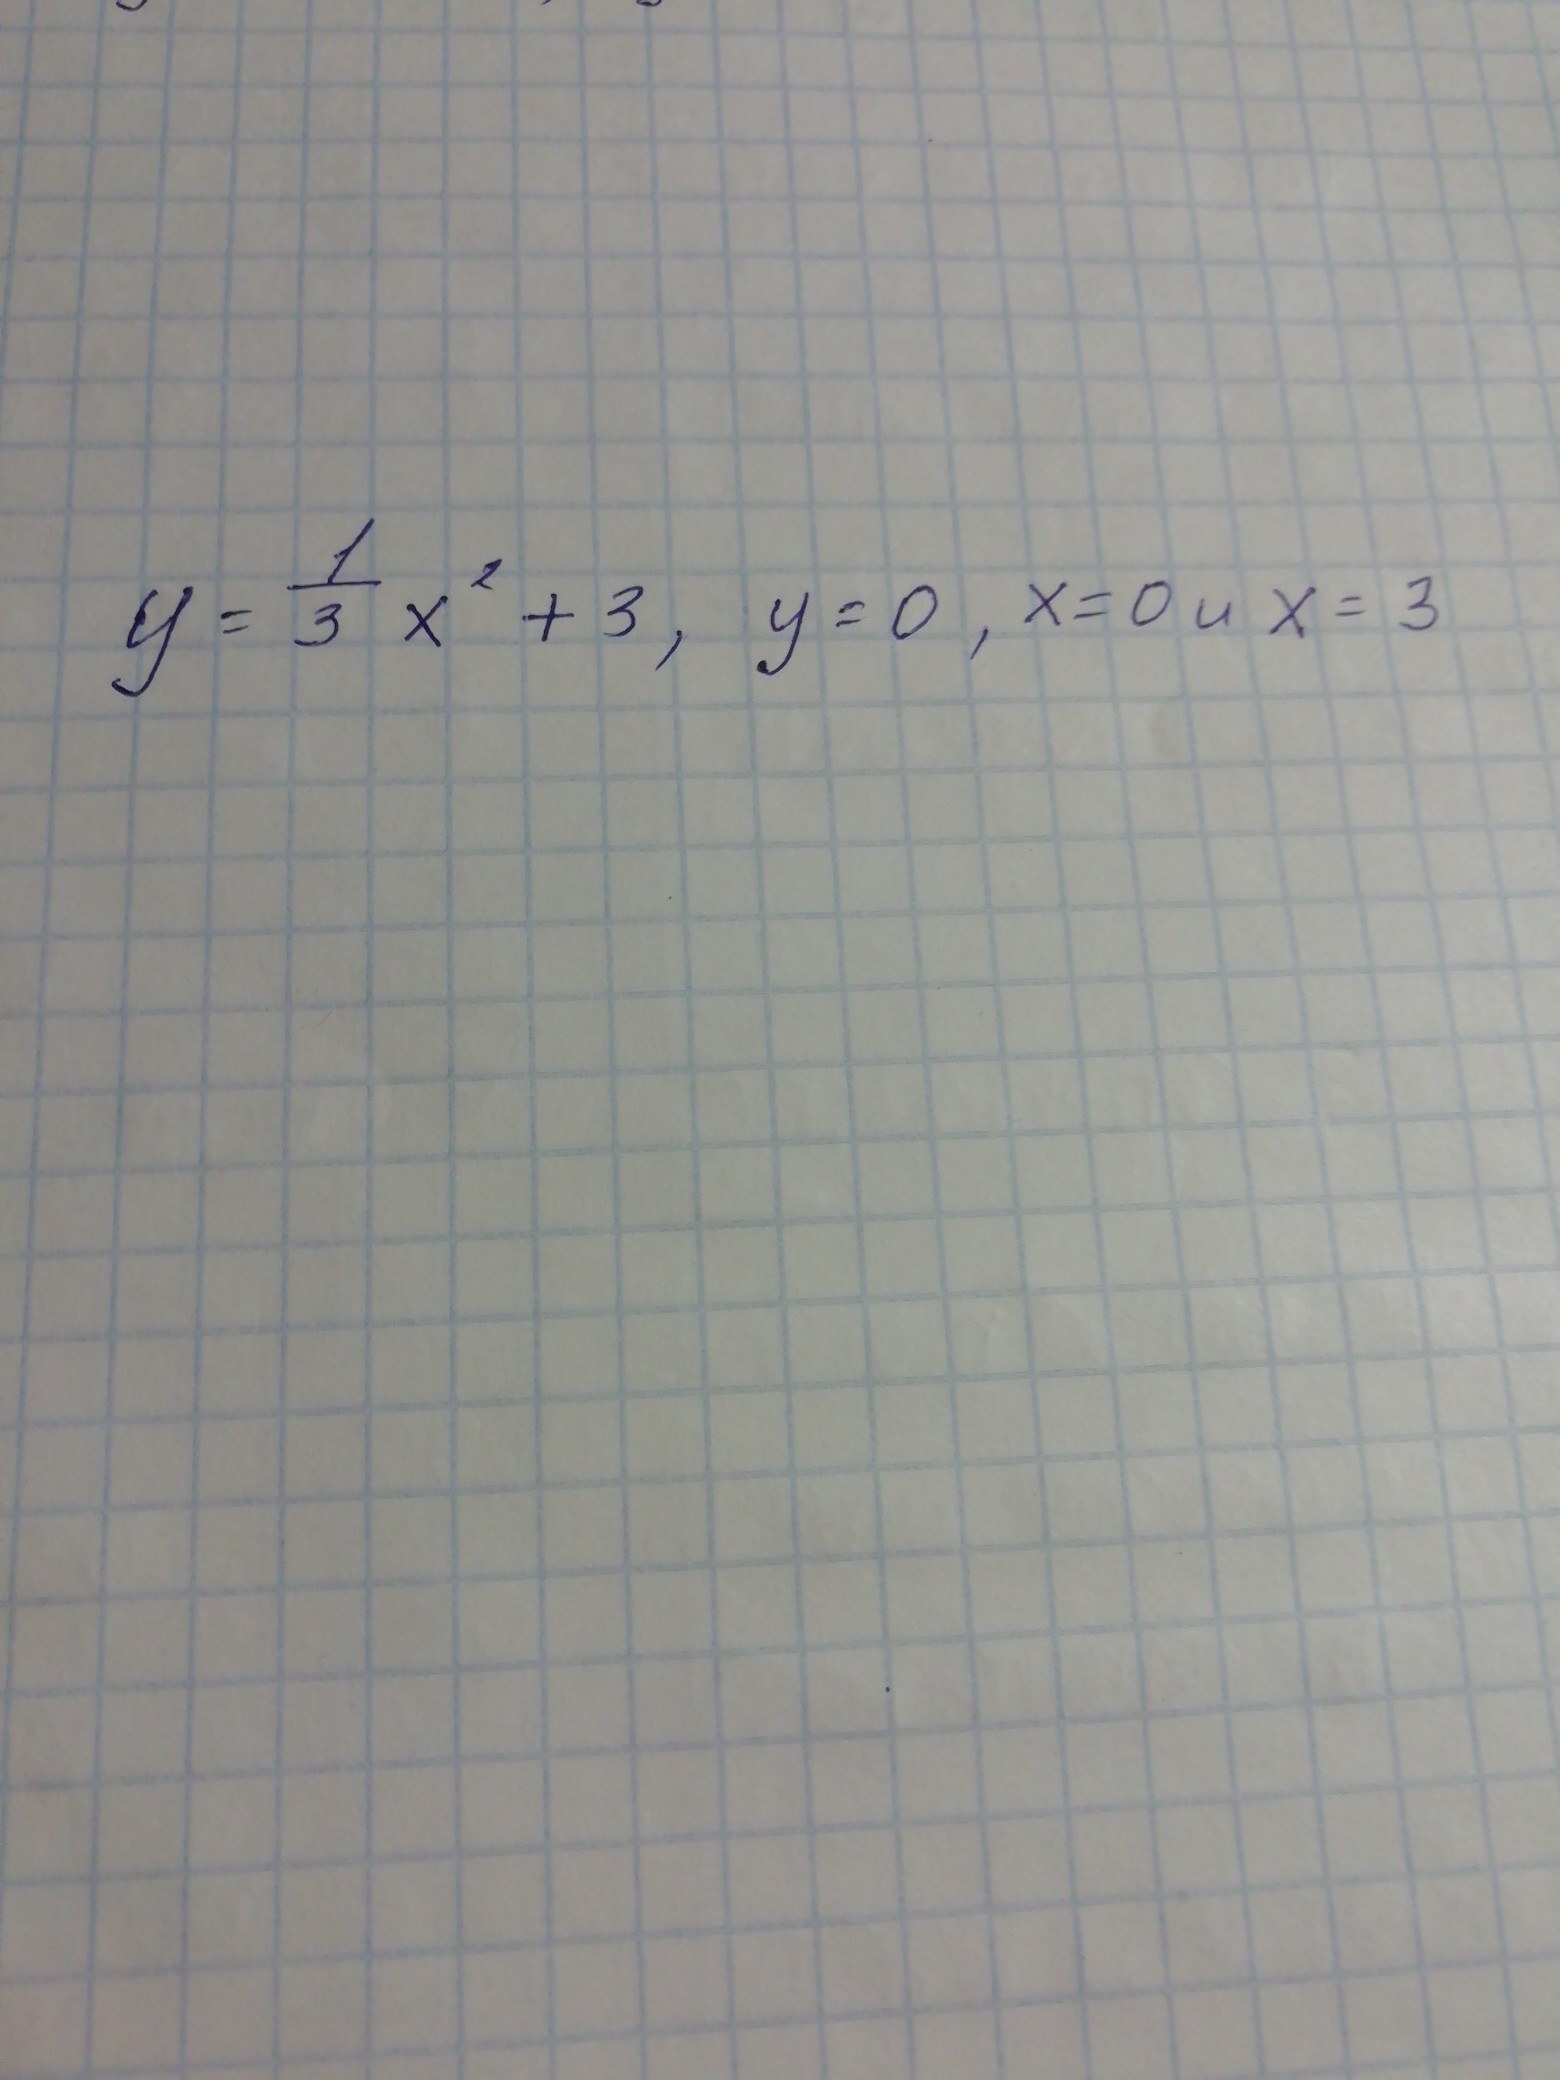 y = 1/3 x² + 3, y = 0, x = 0 и x = 3